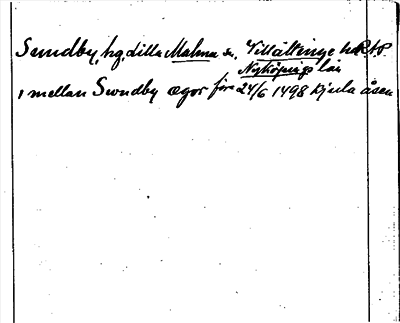 Sundby, hg, Lilla Malma sn, Villåttinge hd
Nyköpings län
1 mellan Swndby ægor före 24/6 1498 Kjula åsen